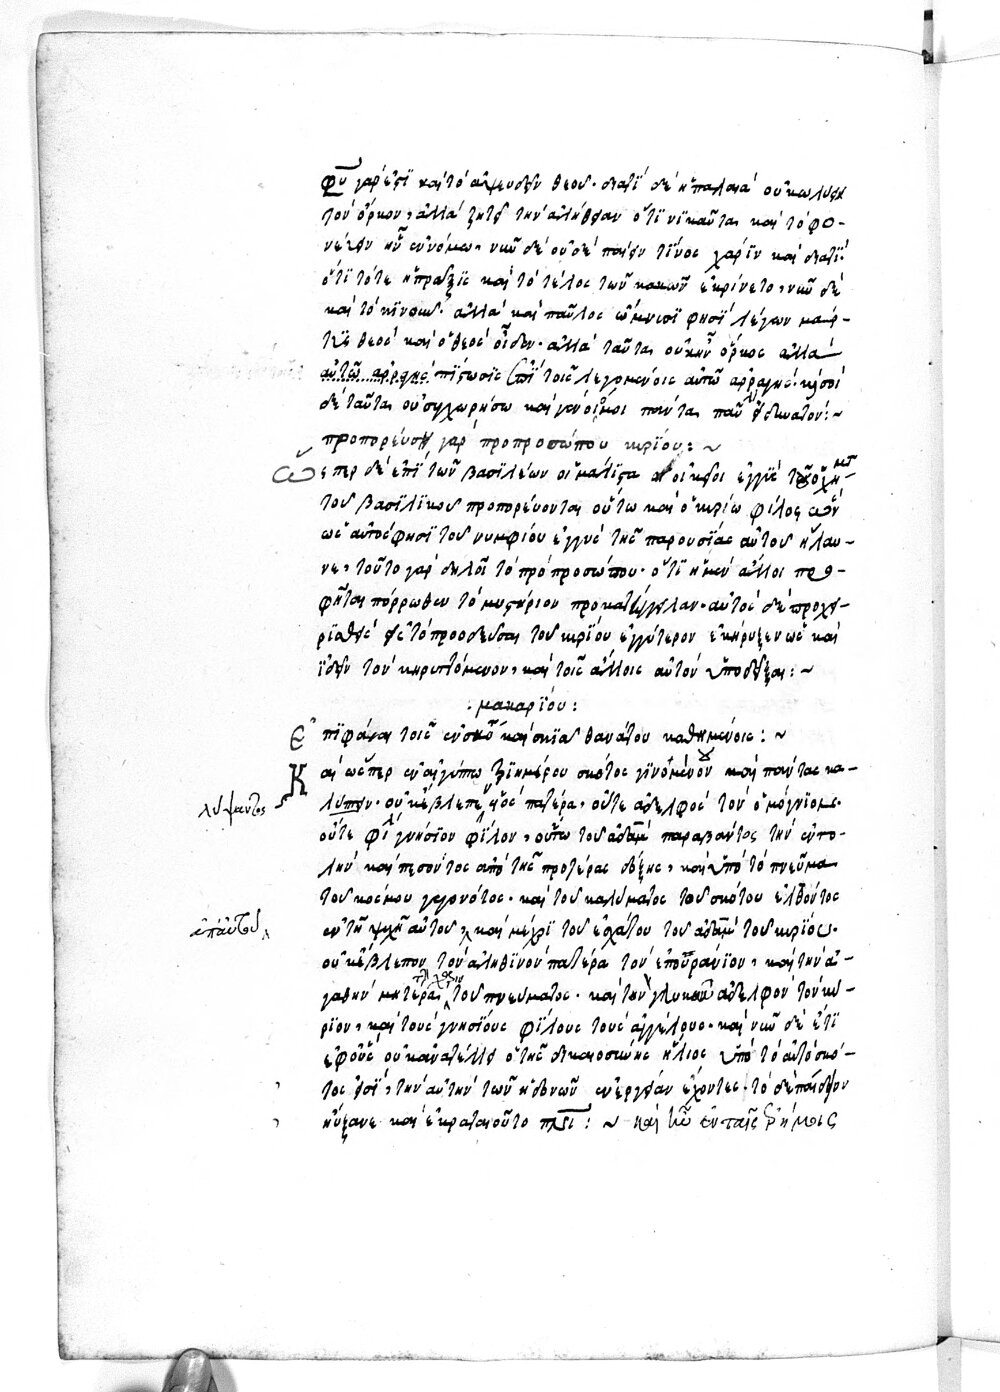 γάρ ἐστὶ καὶ τὸ ἀψευδεῖν θεοῦ· διατί δὲ ἡ παλαιὰ οὐ κωλύει
τὸν ὅρκον, ἀλλὰ ζητεῖ τὴν ἀλήθειαν ὅτι νικᾶται καὶ τὸ φο-
νεύειν ἦν ἔννομον, νῦν δὲ οὐδὲ παίειν τίνος χάριν καὶ διατί·
ὅτι τότε ἡ πρᾶξις καὶ τὸ τέλος τῶν κακῶν ἐκρίνετο, νῦν δὲ
καὶ τὸ κίνημα· ἀλλὰ καὶ παῦλος ὤμνυσι φησὶ λέγων μάρ-
τυς θεὸς καὶ ὁ θεὸς οἶδεν· ἀλλὰ ταῦτα οὐκ ἦν ὅρκος ἀλλὰ
αὐτῶ ἀρραγὴς πίστωσις ἐπὶ τοῖς λεγομένοις αὐτῶ ἀρραγής·
δὲ ταῦτα οὐ συγχωρήσω καὶ πάντα :~
προπορεύσῃ γὰρ πρὸ προσώπου κυρίου : ~
ὥσπερ δὲ ἐπὶ τῶν βασιλέων οἱ μάλιστα οἰκεῖοι ἐγγὺς τοῦ ὀχήματ
τοῦ βασιλικοῦ προπορεύονται οὕτω καὶ ὁ κυρίω φίλος ὢν
ὡς αὐτὸς φησὶ τοῦ νυμφίου ἐγγὺς τῆς παρουσίας αὐτοῦ ἤλαυ-
νε, τοῦτο γὰρ δηλοῖ τὸ πρὸ προσώπου· ὅτι ἡ μὲν ἄλλοι προ-
φῆται πόρρωθεν τὸ μυστήριον προκατήγγειλαν· αὐτὸς δὲ προχει-
ρισθεὶς εἰς τὸ προοδεῦσαι τοῦ κυρίου ἐγγύτερον ἐκήρυξεν ὡς καὶ
ἰδεῖν τὸν κηρυττόμενον, καὶ τοῖς ἄλλοις αὐτὸν ὑποδεῖξαι : ~
· μακαρίου :
ἐπιφάναι τοῖς ἐν σκότει καὶ σκιᾶ θανάτου καθημένοις : ~
Καὶ ὥσπερ ἐν αἰγύπτω τριημέρου σκότος γινομένου καὶ πάντας κα-
λύψαντος
λύπτειν· οὐκ ἔβλεπεν υἱὸς πατέρα· οὔτε ἀδελφὸς τὸν ὁμόγνιον·
οὔτε φίλος γνήσιον φίλον, οὕτω τοῦ ἀδὰμ παραβάντος τὴν ἐντο-
λὴν καὶ πεσόντος ἀπὸ τῆς προτέρας δόξης, καὶ ὑπὸ τὸ πνεῦμα
τοῦ κόσμου γεγονότος· καὶ τοῦ καλύματος τοῦ σκότου ἐλθόντος
ἀπ' αὐτοῦ
ἐν τῆ ψυχῆ αὐτοῦ, καὶ μέχρι τοῦ ἐσχάτου τοῦ ἀδὰμ τοῦ κυρίου·
οὐκ ἔβλεπον τὸν ἀληθινὸν πατέρα τὸν ἐπουράνιον, καὶ τὴν ἀ-
γαθὴν μητέρα τοῦ πνεύματος· καὶ τὸν γλυκὺν ἀδελφὸν τὸν κύ-
ριον, καὶ τοὺς γνησίους φίλους τοὺς ἀγγέλους· καὶ νῦν δὲ ἔτι
ἐφ' οὓς οὐκ ἀνατέλλει ὁ τῆς δικαιοσύνης ἥλιος ὑπὸ τὸ αὐτὸ σκό-
τος εἰσί, τὴν αὐτὴν τῶν ἡδονῶν ἐνέργειαν ἔχοντες· τὸ δὲ παιδίον
ηὔξανε καὶ ἐκραταιοῦτο πνι : ~ καὶ ἦν ἐν ταῖς ἐρήμοις